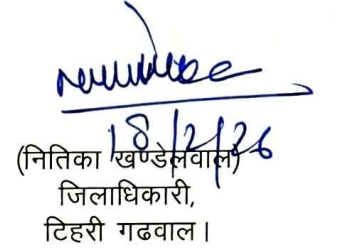 18/2/26
(नितिका खण्डेलवाल)
जिलाधिकारी,
टिहरी गढवाल।